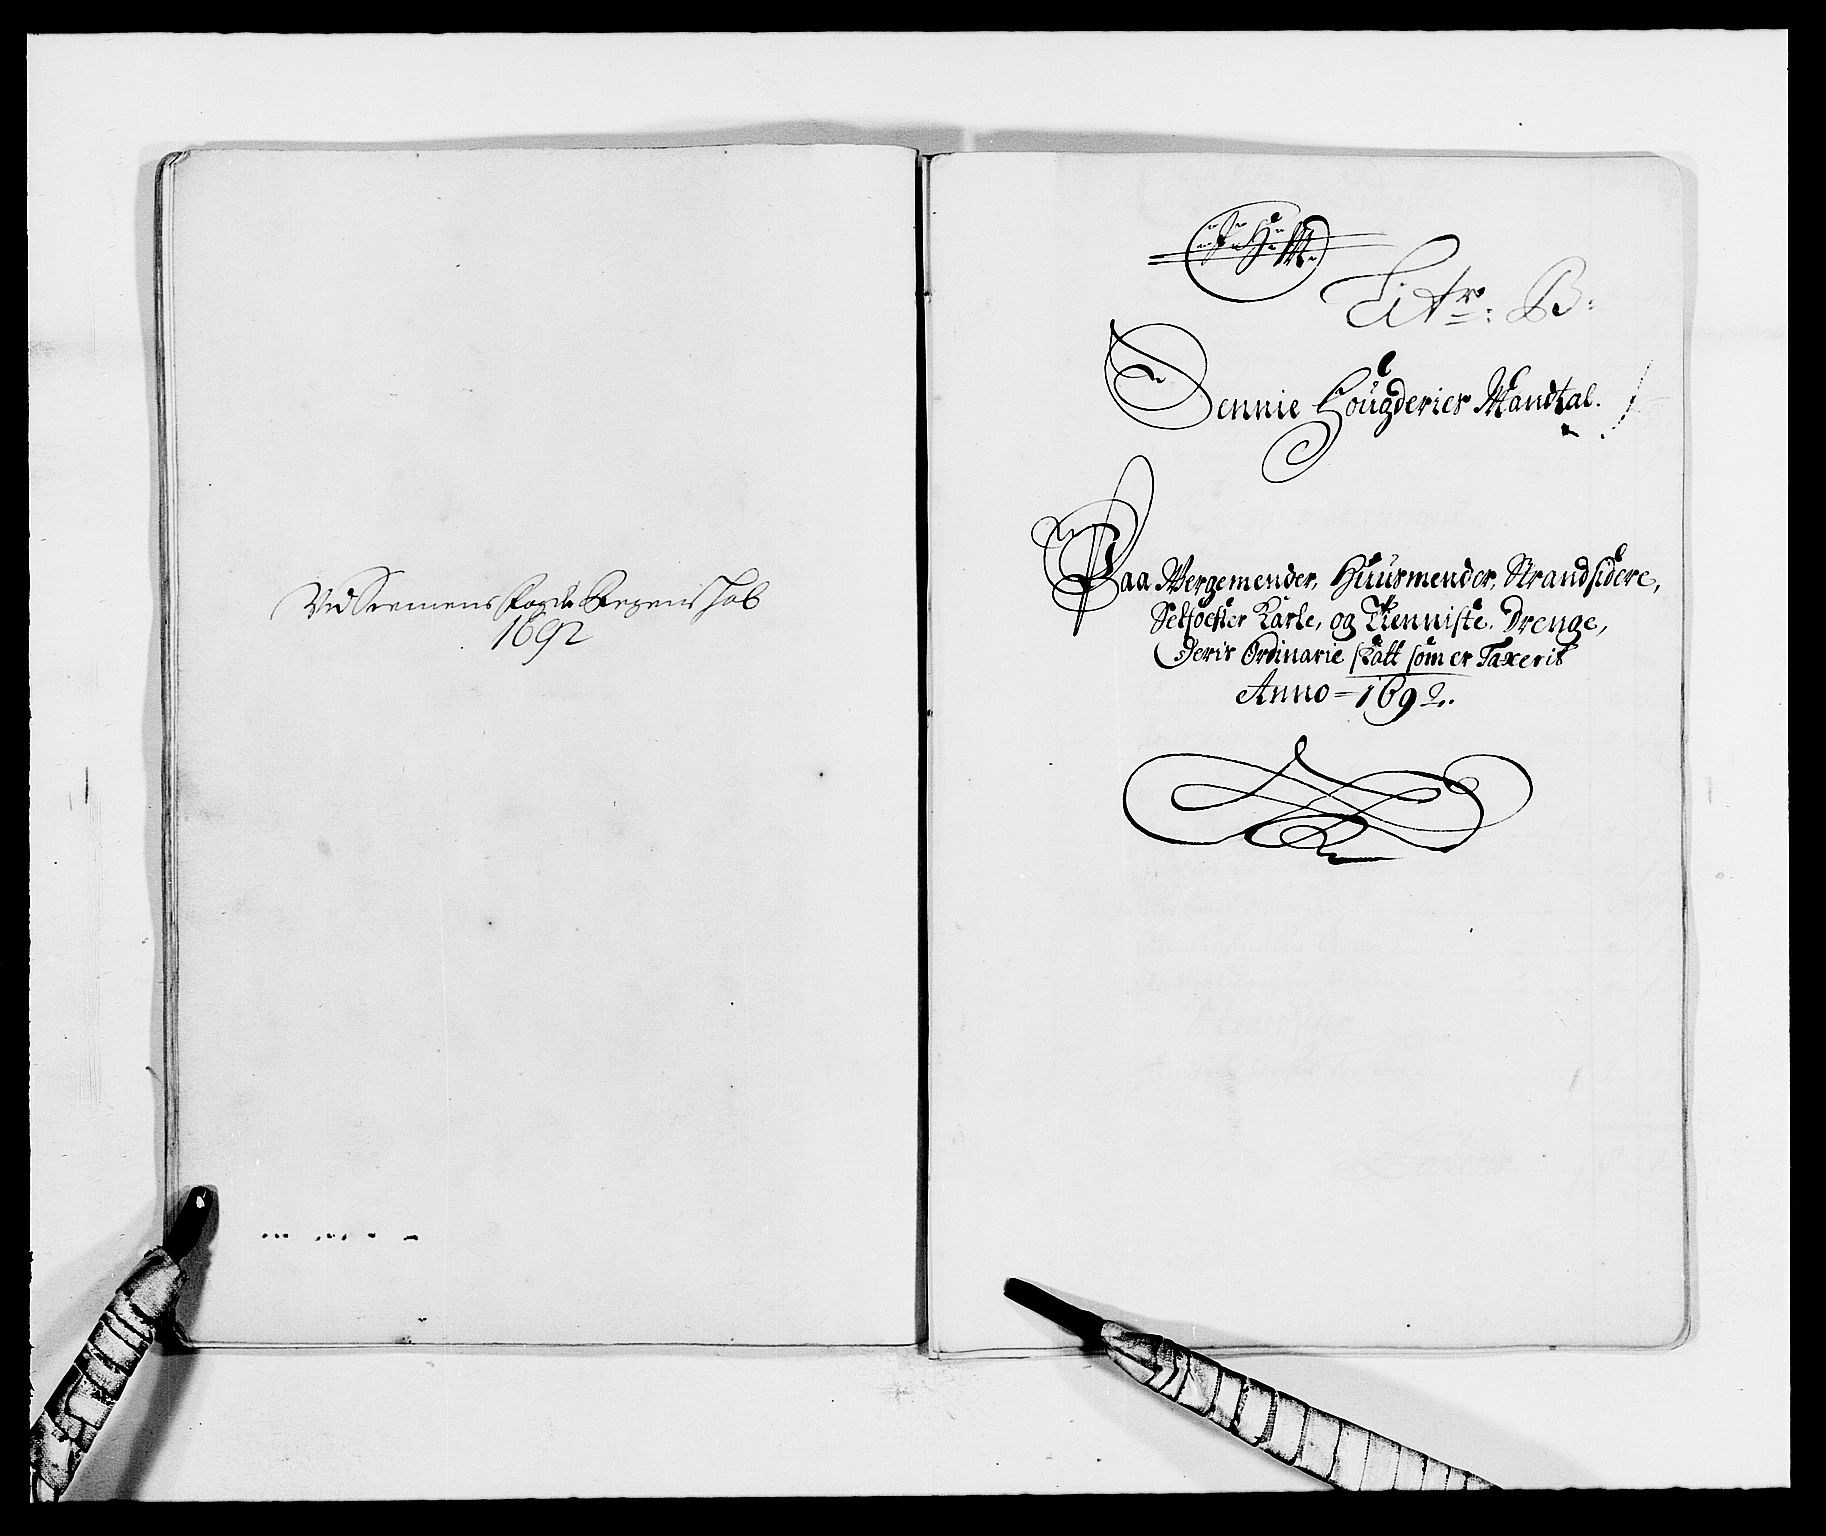 Vid Sremens Fogde Regenschab
1692
J. H. M.
Litr: B:
Dennie Fougderies Mandtal.
Paa Wergemender, Huusmender, Strandsidere,
Selfoester Karle, og Thenniste Drenge,
Deris Ordinarie skatt som er Taxerit
Anno = 1692.